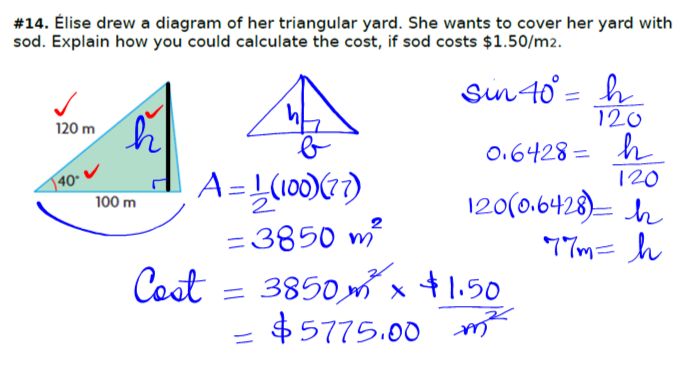 #14. Élise drew a diagram of her triangular yard. She wants to cover her yard with
sod. Explain how you could calculate the cost, if sod costs $1.50/m2.
120 m
h
40°
100 m
h
b
A = 1/2 (100)(77)
= 3850 m²
sin 40° = h/120
0.6428 = h/120
120(0.6428) = h
77m = h
Cost = 3850 m² x $1.50/m²
= $5775.00